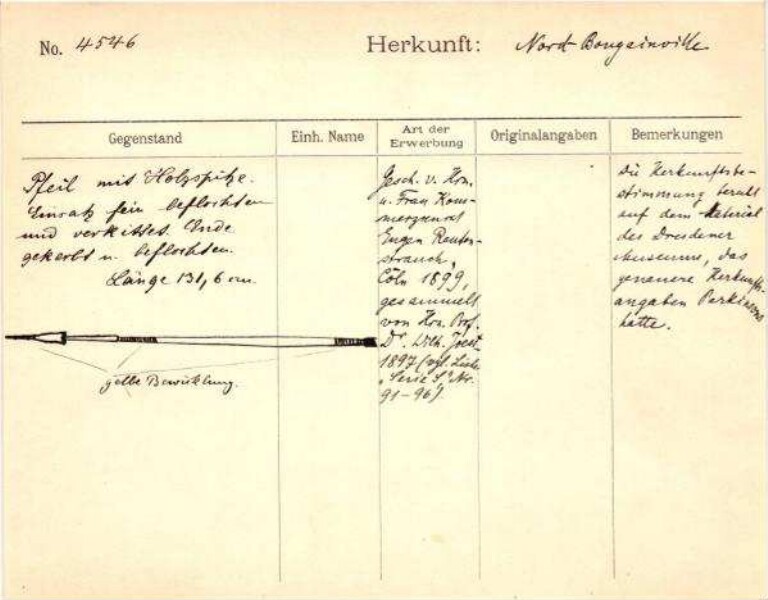 No. 4546 Herkunft: Nord-Bougainville
Gegenstand
Einh. Name
Art der
Erwerbung
Originalangaben
Bemerkungen
Pfeil mit Holzspitze.
Einsatz fein beflochten
und verkittet. Ende
gekerbt u. beflochten.
Länge 131,6 cm.
gelbe Bewicklung.
Gesch. v. Hrn.
u. Frau Kom-
merzienrat
Eugen Rauten-
strauch,
Cöln 1899,
gesammelt
von Hrn. Prof.
Dr. Wilh. Joest
1897 (vgl. Liste
"Serie S," Nr.
91-96).
Die Herkunftsbe-
stimmung beruht
auf dem Material
des Dresdener
Museums, das
genauere Herkunfts-
angaben Parkinsons
hatte.